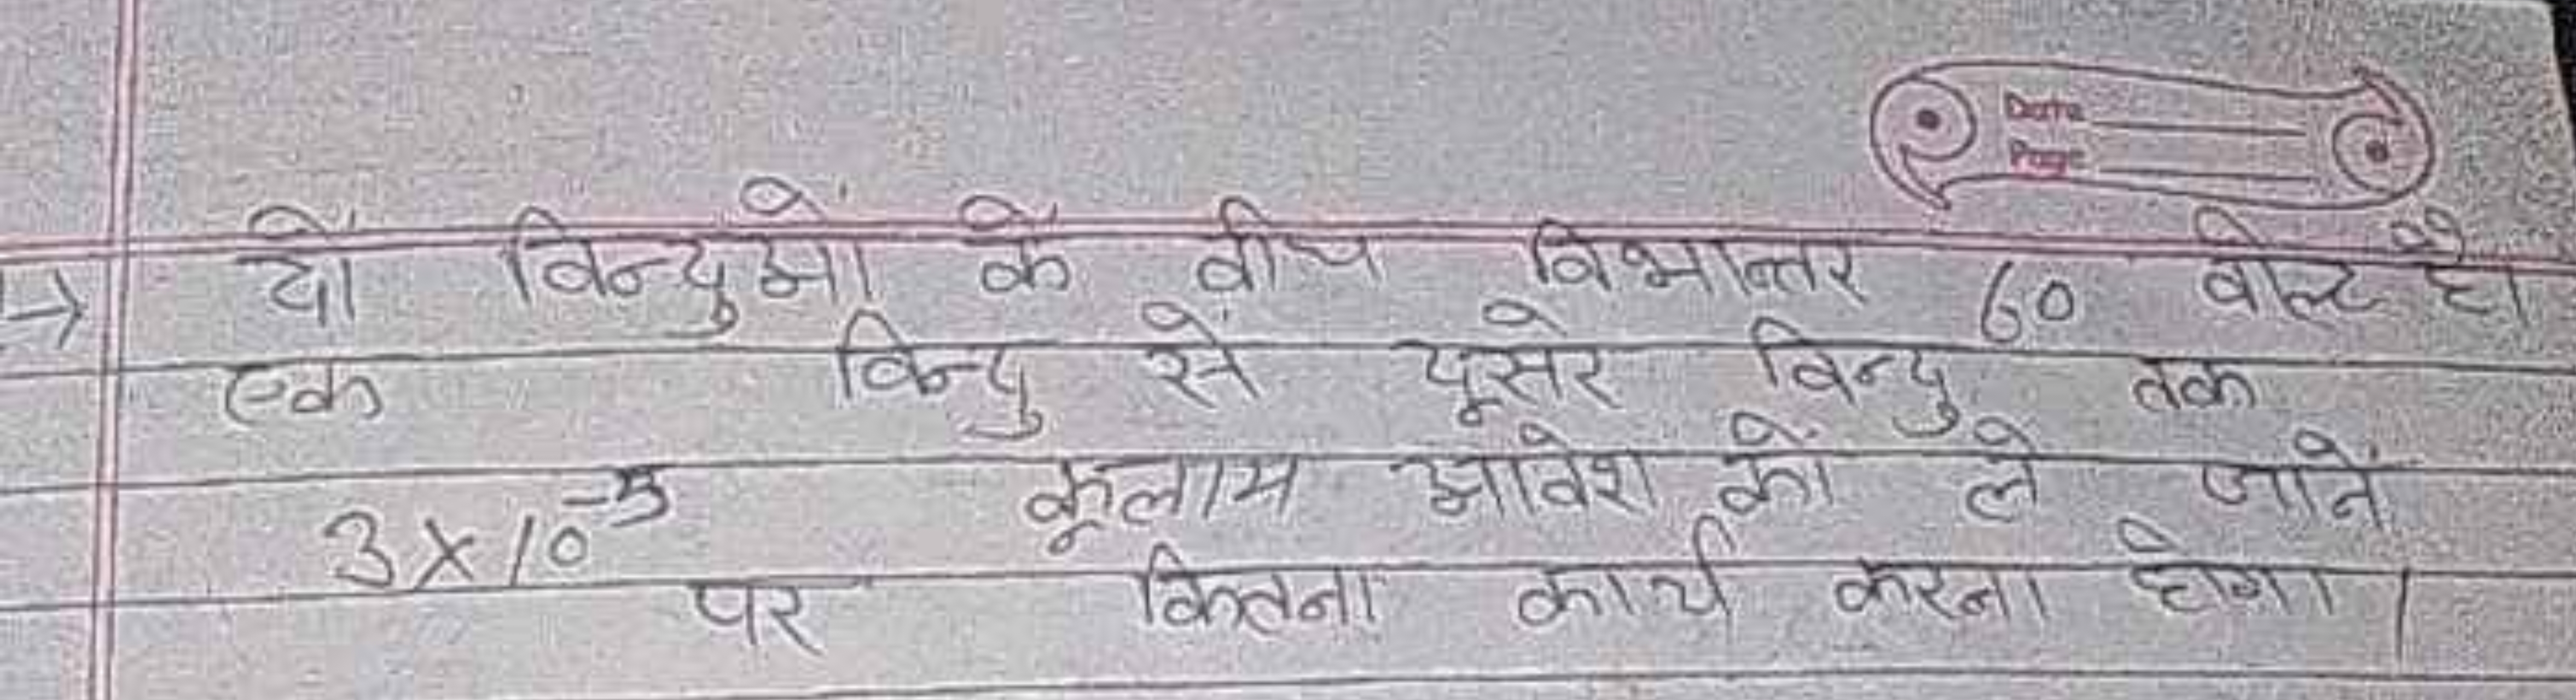 Date
Page
→ दो विन्दुओं के वीच विभान्तर 60 वोल्ट हो
एक विन्दु से दूसरे विन्दु तक
3 × 10⁻⁵ कूलाम आवेश को ले जाने
पर कितना कार्य करना होगा।